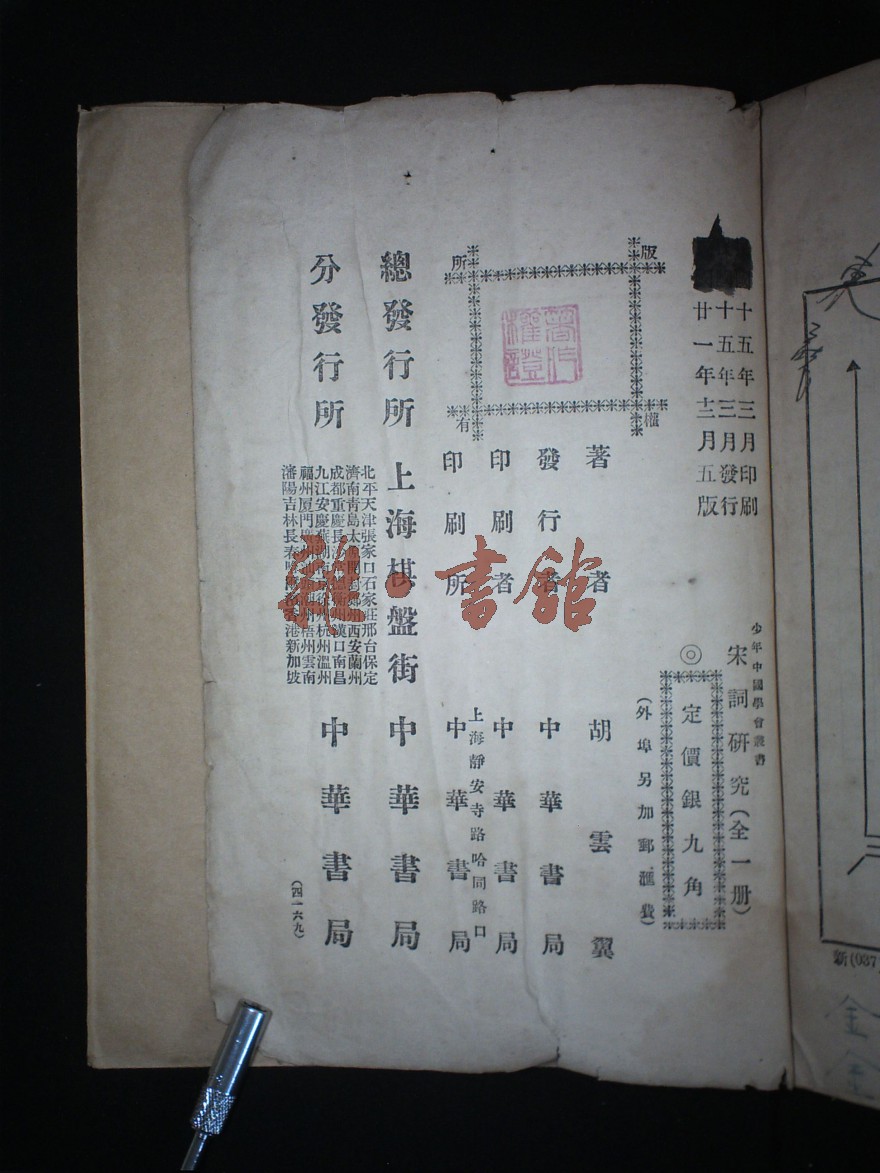 十五年三月印刷
十五年三月發行
廿一年十二月五版
少年中國學會叢書
宋詞研究（全一册）
◎
定價銀九角
（外埠另加郵滙費）
版
權
所
有
著作
權證
著者 胡雲翼
發行者 中華書局
印刷者 中華書局
上海靜安寺路哈同路口
印刷所 中華書局
總發行所 上海棋盤街 中華書局
分發行所
北平天津張家口石家莊邢台保定
濟南青島太原開封鄭州西安蘭州
成都重慶長沙
漢口南昌
九江安慶蕪湖南京
杭州溫州
福州厦門廣州
潮州梧州雲南
瀋陽吉林長春
香港新加坡
中華書局
（四一六九）
書館
新(037
金